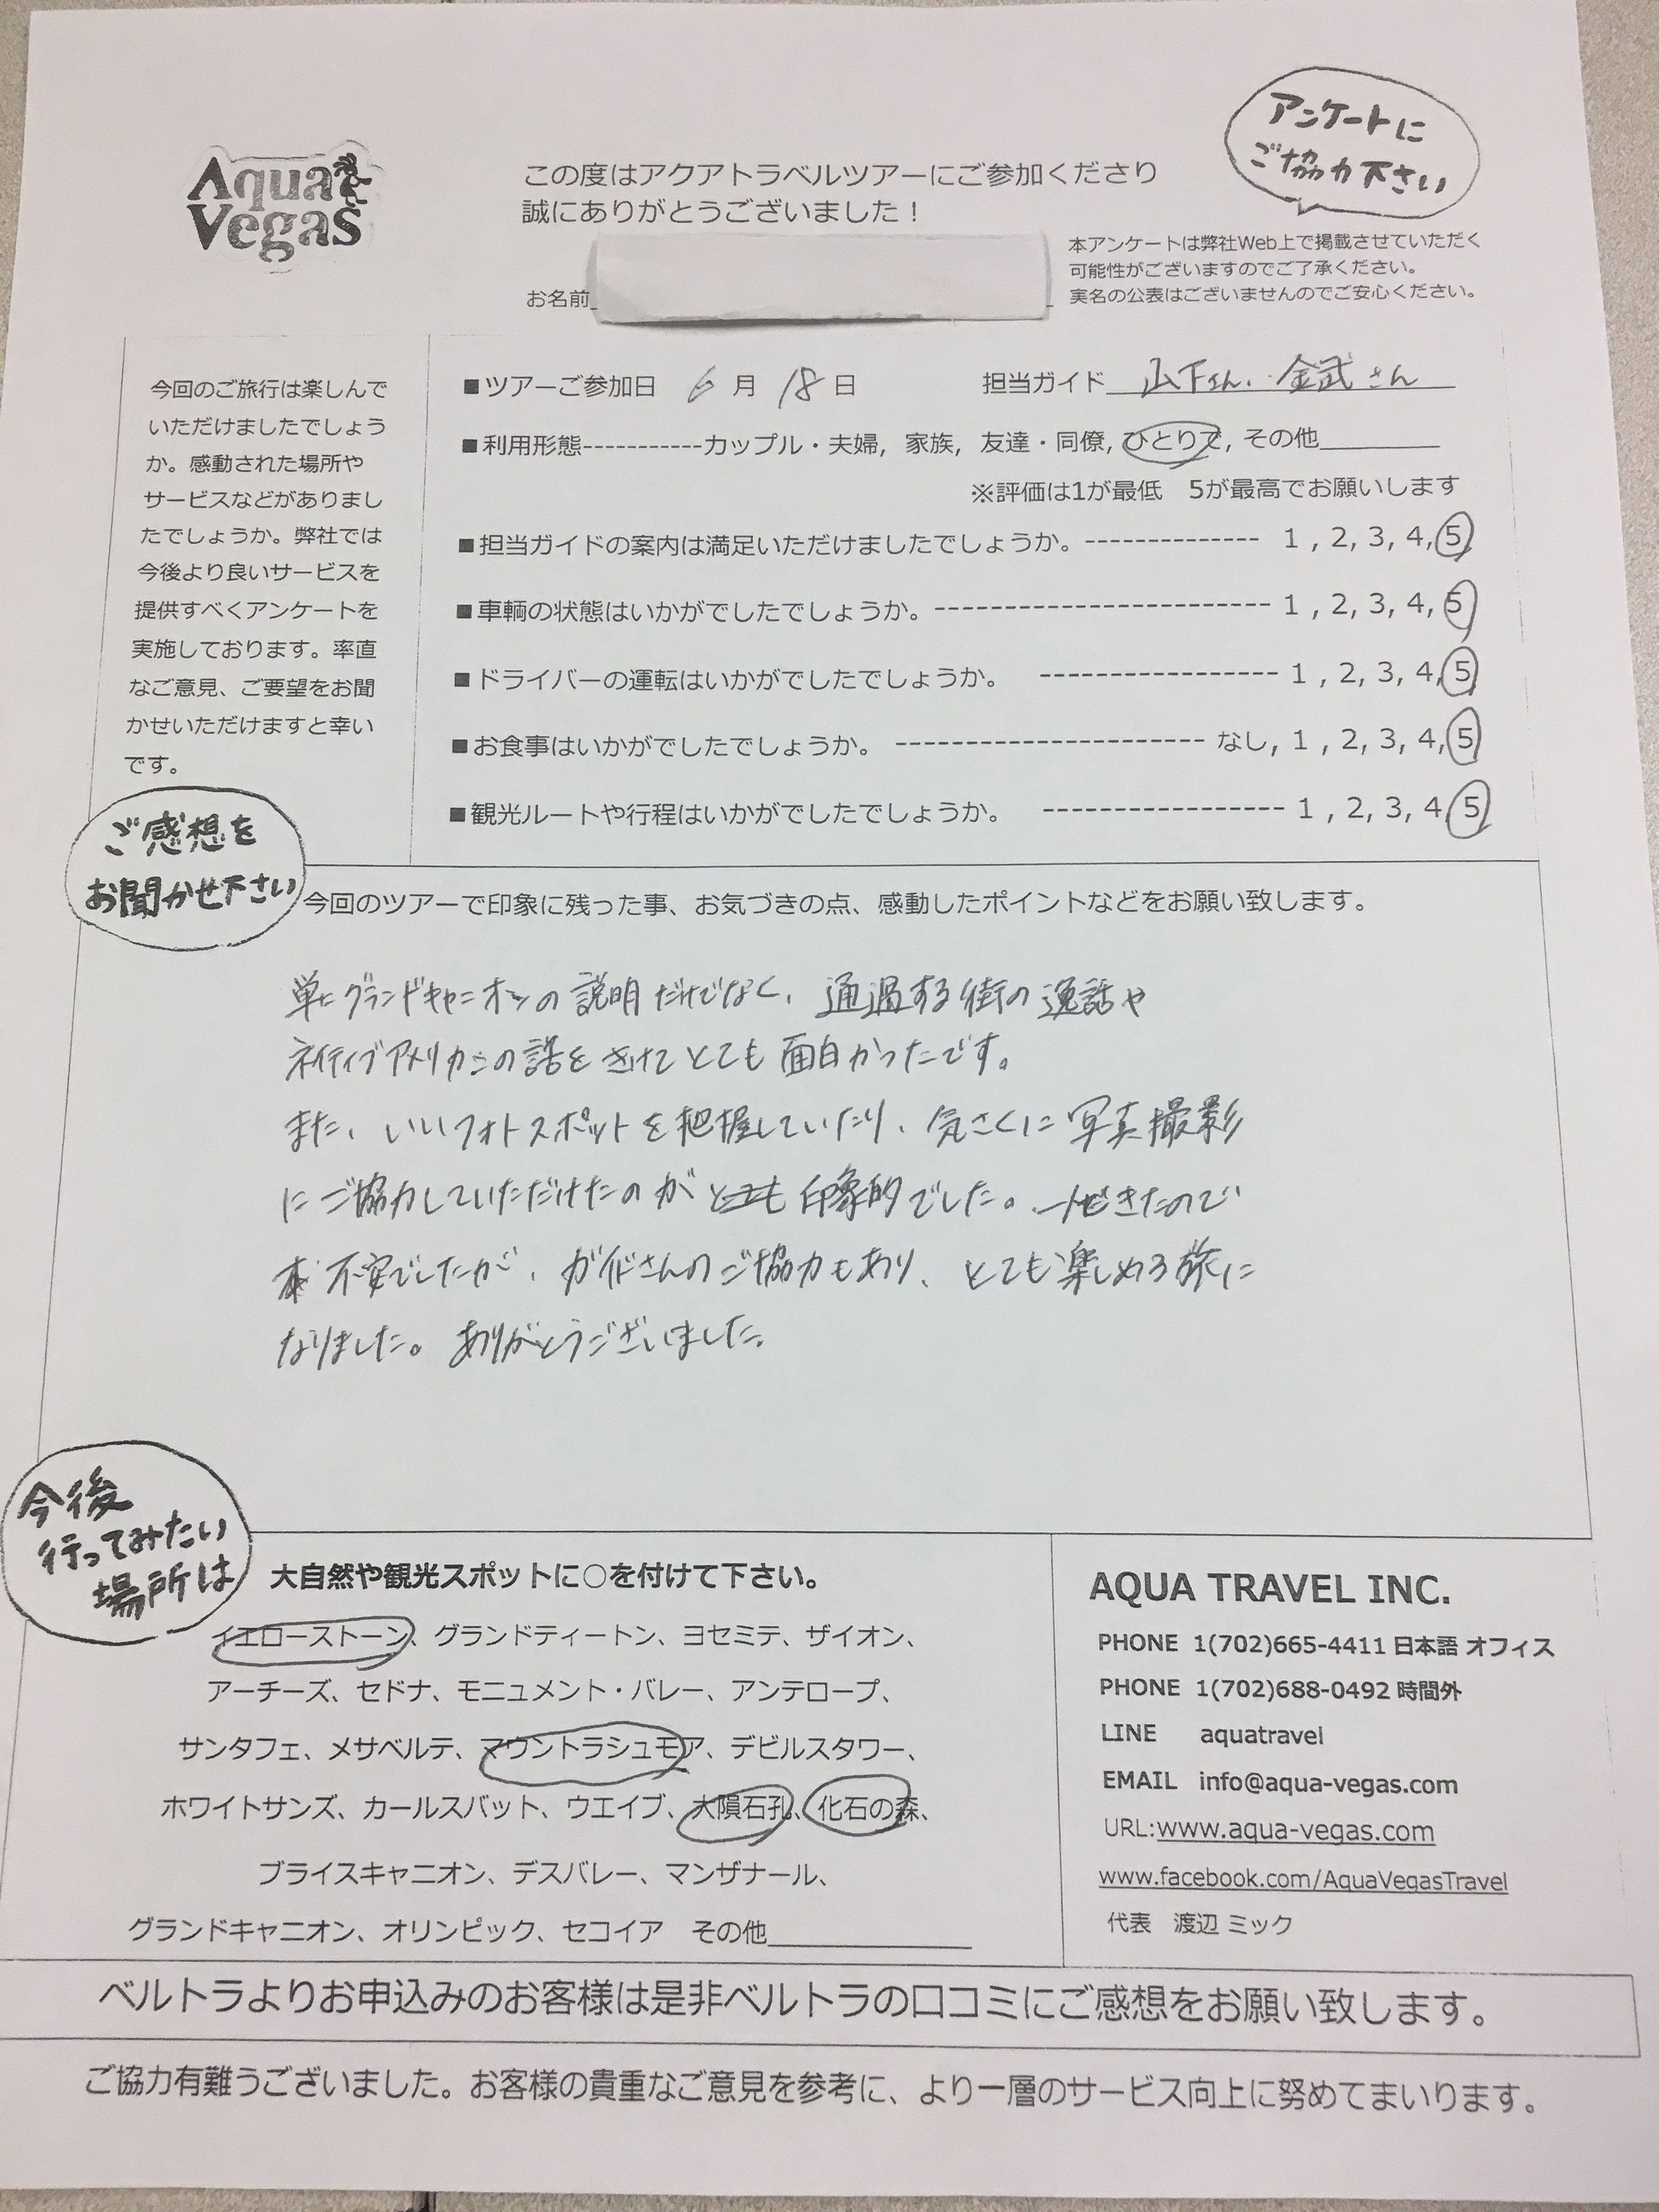 Aqua
Vegas
この度はアクアトラベルツアーにご参加くださり
誠にありがとうございました！
アンケートに
ご協力下さい
本アンケートは弊社Web上で掲載させていただく
可能性がございますのでご了承ください。
実名の公表はございませんのでご安心ください。
お名前
今回のご旅行は楽しんで
いただけましたでしょう
か。感動された場所や
サービスなどがありまし
たでしょうか。弊社では
今後より良いサービスを
提供すべくアンケートを
実施しております。率直
なご意見、ご要望をお聞
かせいただけますと幸い
です。
■ツアーご参加日 6月 18日 担当ガイド 山下さん、金武さん
■利用形態-----------カップル・夫婦, 家族, 友達・同僚, ひとりで, その他
※評価は1が最低 5が最高でお願いします
■担当ガイドの案内は満足いただけましたでしょうか。-------------- 1 , 2, 3, 4, 5
■車輌の状態はいかがでしたでしょうか。------------------------ 1 , 2, 3, 4, 5
■ドライバーの運転はいかがでしたでしょうか。 ----------------- 1 , 2, 3, 4, 5
■お食事はいかがでしたでしょうか。 ---------------------- なし, 1 , 2, 3, 4, 5
■観光ルートや行程はいかがでしたでしょうか。 ----------------- 1 , 2, 3, 4, 5
ご感想を
お聞かせ下さい
今回のツアーで印象に残った事、お気づきの点、感動したポイントなどをお願い致します。
単にグランドキャニオンの説明だけでなく、通過する街の逸話や
ネイティブアメリカンの話をきけてとても面白かったです。
また、いいフォトスポットを把握していたり、気さくに写真撮影
にご協力していただけたのがとても印象的でした。一人できたので
不安でしたが、ガイドさんのご協力もあり、とても楽しめる旅に
なりました。ありがとうございました。
今後
行ってみたい
場所は
大自然や観光スポットに○を付けて下さい。
イエローストーン、グランドティートン、ヨセミテ、ザイオン、
アーチーズ、セドナ、モニュメント・バレー、アンテロープ、
サンタフェ、メサベルテ、マウントラシュモア、デビルスタワー、
ホワイトサンズ、カールスバット、ウエイブ、大隕石孔、化石の森、
ブライスキャニオン、デスバレー、マンザナール、
グランドキャニオン、オリンピック、セコイア その他
AQUA TRAVEL INC.
PHONE 1(702)665-4411 日本語 オフィス
PHONE 1(702)688-0492 時間外
LINE aquatravel
EMAIL info@aqua-vegas.com
URL:www.aqua-vegas.com
www.facebook.com/AquaVegasTravel
代表 渡辺 ミック
ベルトラよりお申込みのお客様は是非ベルトラの口コミにご感想をお願い致します。
ご協力有難うございました。お客様の貴重なご意見を参考に、より一層のサービス向上に努めてまいります。